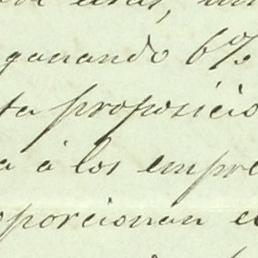 ganando 6%
ta proposicio
a á los empre
oporcionan e